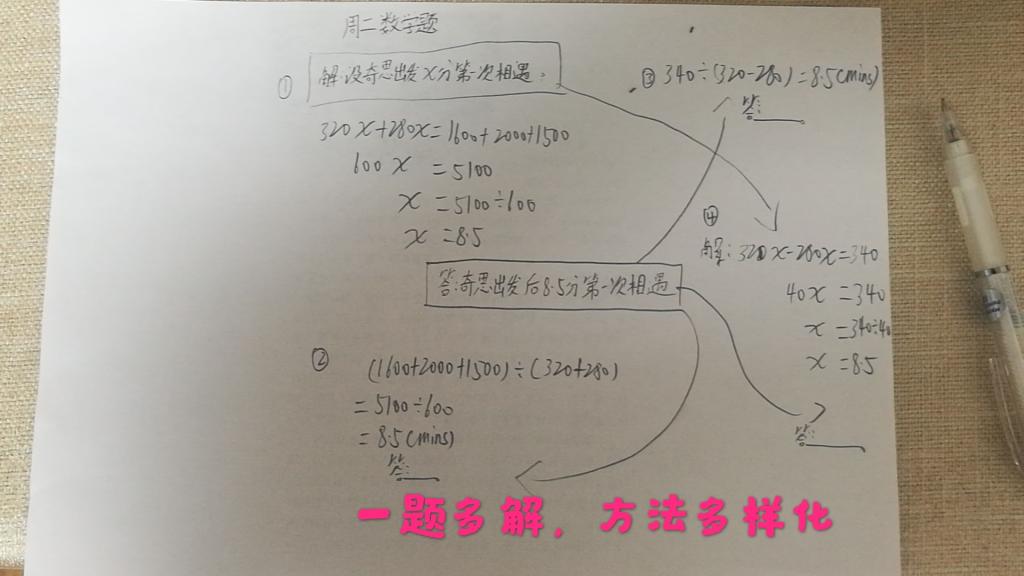 周二数学题
①
解:设奇思出发x分第一次相遇.
320x+280x=1600+2000+1500
600x=5100
x=5100÷600
x=8.5
答:奇思出发后8.5分第一次相遇
②
(1600+2000+1500)÷(320+280)
=5100÷600
=8.5(mins)
答:
③ 340÷(320-280)=8.5(mins)
答:
④
解:320x-280x=340
40x=340
x=340÷40
x=8.5
答:
一题多解，方法多样化